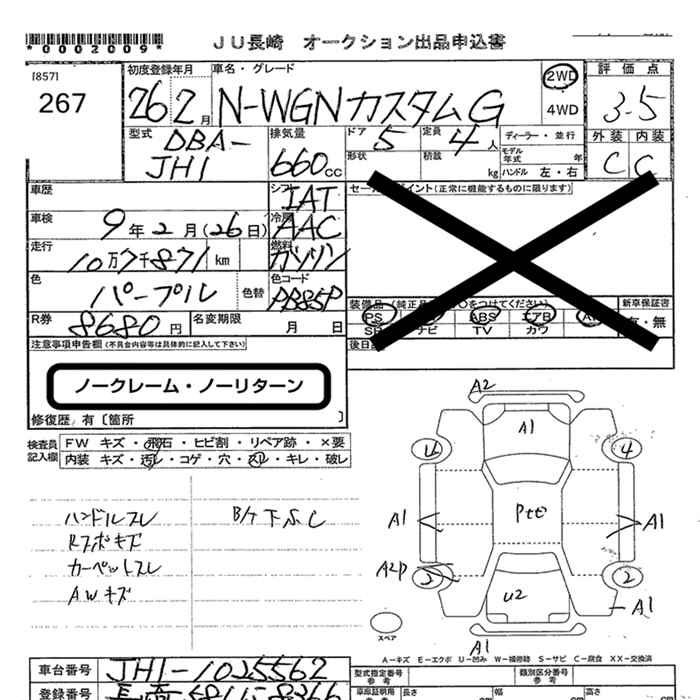 *0002009*
JU長崎 オークション出品申込書
[857]
267
初度登録年月
26 2月
車名・グレード
N-WGNカスタムG
2WD
4WD
評価点
3.5
型式
DBA-
JH1
排気量
660cc
ドア 5
定員 4人
形状
積載 kg
ディーラー・並行
モデル年式 年
ハンドル 左・右
外装 内装
C C
車歴
シフト
IAT
車検
9年2月(26日)
冷房
AAC
走行
10万7千871km
燃料
ガソリン
色
パープル
色替
色コード
PB85P
R券
8680円
名変期限
月 日
(正常に機能するものに限ります)
装備品
○をつけてください)
新車保証書
有・無
PS
ABS
エアB
ナビ
TV
カワ
後日
注意事項申告欄(不具合内容等は具体的に記入して下さい)
ノークレーム・ノーリターン
修復歴 有〔箇所 〕
検査員記入欄
FW キズ・飛石・ヒビ割・リペア跡・×要
内装 キズ・汚レ・コゲ・穴・スレ・キレ・破レ
ハンドルスレ
Rスポキズ
カーペットスレ
AWキズ
B/ケ下ふし
A2
A1
4
4
A1
A1
A2P
2
2
U2
A1
A1
スペア
A-キズ E-エクボ U-凹み W-補修跡 S-サビ C-腐食 XX-交換済
車台番号
JH1-1025562
登録番号
型式指定番号
参考
類別区分番号
参考
車庫証明用
長さ
幅
高さ